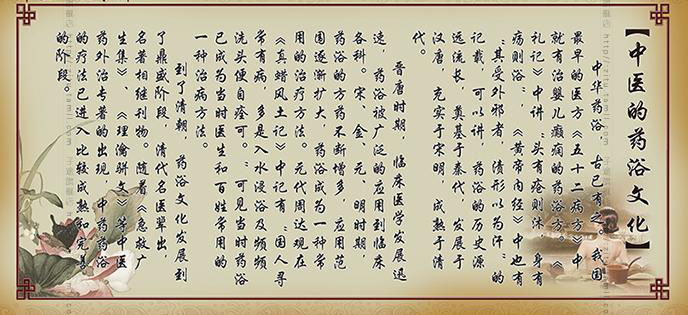 【中医的药浴文化】
中华药浴，古已有之。我国
最早的医方《五十二病方》中
就有治婴儿癫痫的药浴方。《
礼记》中讲“头有疮则沐，身有
疡则浴”，《黄帝内经》中也有
“其受外邪者，渍形以为汗”的
记载，可以讲，药浴的历史源
远流长，奠基于秦代，发展于
汉唐，充实于宋明，成熟于清
代。
晋唐时期，临床医学发展迅
速，药浴被广泛的应用到临床
各科。宋、金、元、明时期，
药浴的方药不断增多，应用范
围逐渐扩大，药浴成为一种常
用的治疗方法。元代周达现在
《真蜡风土记》中记有：国人寻
常有病，多是入水浸浴及频频
洗头便自痊可。：可见当时药浴
已成为当时医生和百姓常用的
一种治病方法。
到了清朝，药浴文化发展到
了鼎盛阶段，清代名医辈出，
名著相继刊物。随着《急救广
生集》、《理瀹骈文》等中医
药外治专著的出现，中药药浴
的疗法已进入比较成熟和完善
的阶段。